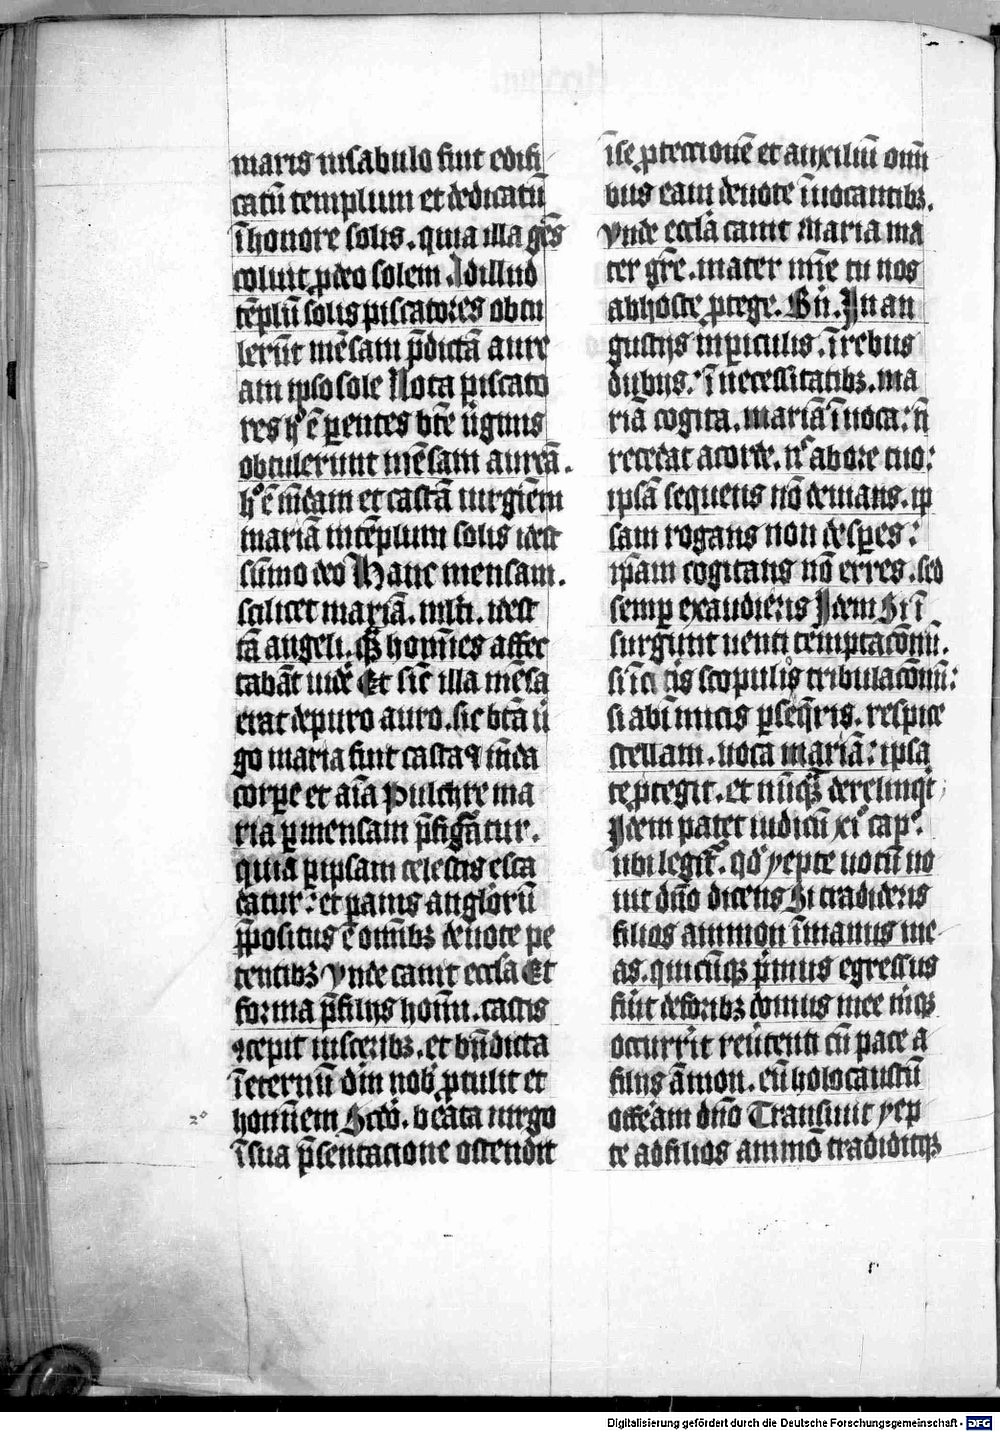 maris in sabulo fuit edifi
catū templum et dedicatū
ī honore solis. quia illa gēs
coluit ꝓ deo solem. Ad illud
tēplū solis piscatores obtu
lerūt mēsam p̄dictā aure
am ipso sole Nota piscato
res h° ē parentes bt̄e ūginis
obtulerunt mēsam aureā.
h° ē mūdam et castā uirgiēm
mariā in tēplum solis idest
sūmo deo Hanc mensam.
scilicet mariā. idest
tā angeli. qȝ homīes affec
tabāt uidē Et sic̄ illa mēsa
erat de puro auro. sic btā ū
go maria fuit casta ⁊ mūda
corpe et aīa Pulchre ma
ria ꝑ mensam p̄figuratur.
quia ꝑ ipsam celestis esca
datur: et panis anglorū
ꝓpositus ē omībȝ deuote pe
tentibȝ Vnde canit eccl̄a Et
forma p̄ filijs homī. castis
ꝯcepit uiscēibȝ. et bn̄dicta
ī eternū dīm nob ꝓtulit et
hominem Scdō. beata uirgo
ī sua p̄sentacione ostendit
ī se ꝓtectionē et auxiliū omī
bus eam deuote īuocantibȝ.
Vnde eccl̄a canit Maria ma
ter gr̄e. mater mīe tu nos
ab hoste ꝓtege. Bn̄. In an
gustijs in ꝑiculis. ī rebus
dubijs: ī necessitatibȝ. ma
riā cogita. mariā īuoca: n̄
recedat a corde. n° ab ore tuo:
ipsā sequens nō deuians. ip
sam rogans non despes:
ip̄am cogitans nō erres. sed
semp exaudieris Idem Si ī
surgūnt uenti temptacōnū.
si īcīis scopulis tribulacōnū:
si ab inimicis ꝑseq̄ris. respice
stellam. uoca mariā: ipsa
te ꝓtegit. et nūqȝ derelinqt
Idem patet iudicū xi° cap°.
ubi legit̄. qd yepte uotū uo
uit dño dicens Si tradideris
filios ammon ī manus me
as. quicūqȝ p̄mus egressus
fūit de foribȝ domus mee miqȝ
occurrit reūtenti cū pace a
filijs āmon. eū holocaustū
offeram dño Transiuit yep
te ad filios ammō tradiditqȝ
Digitalisierung gefördert durch die Deutsche Forschungsgemeinschaft - DFG